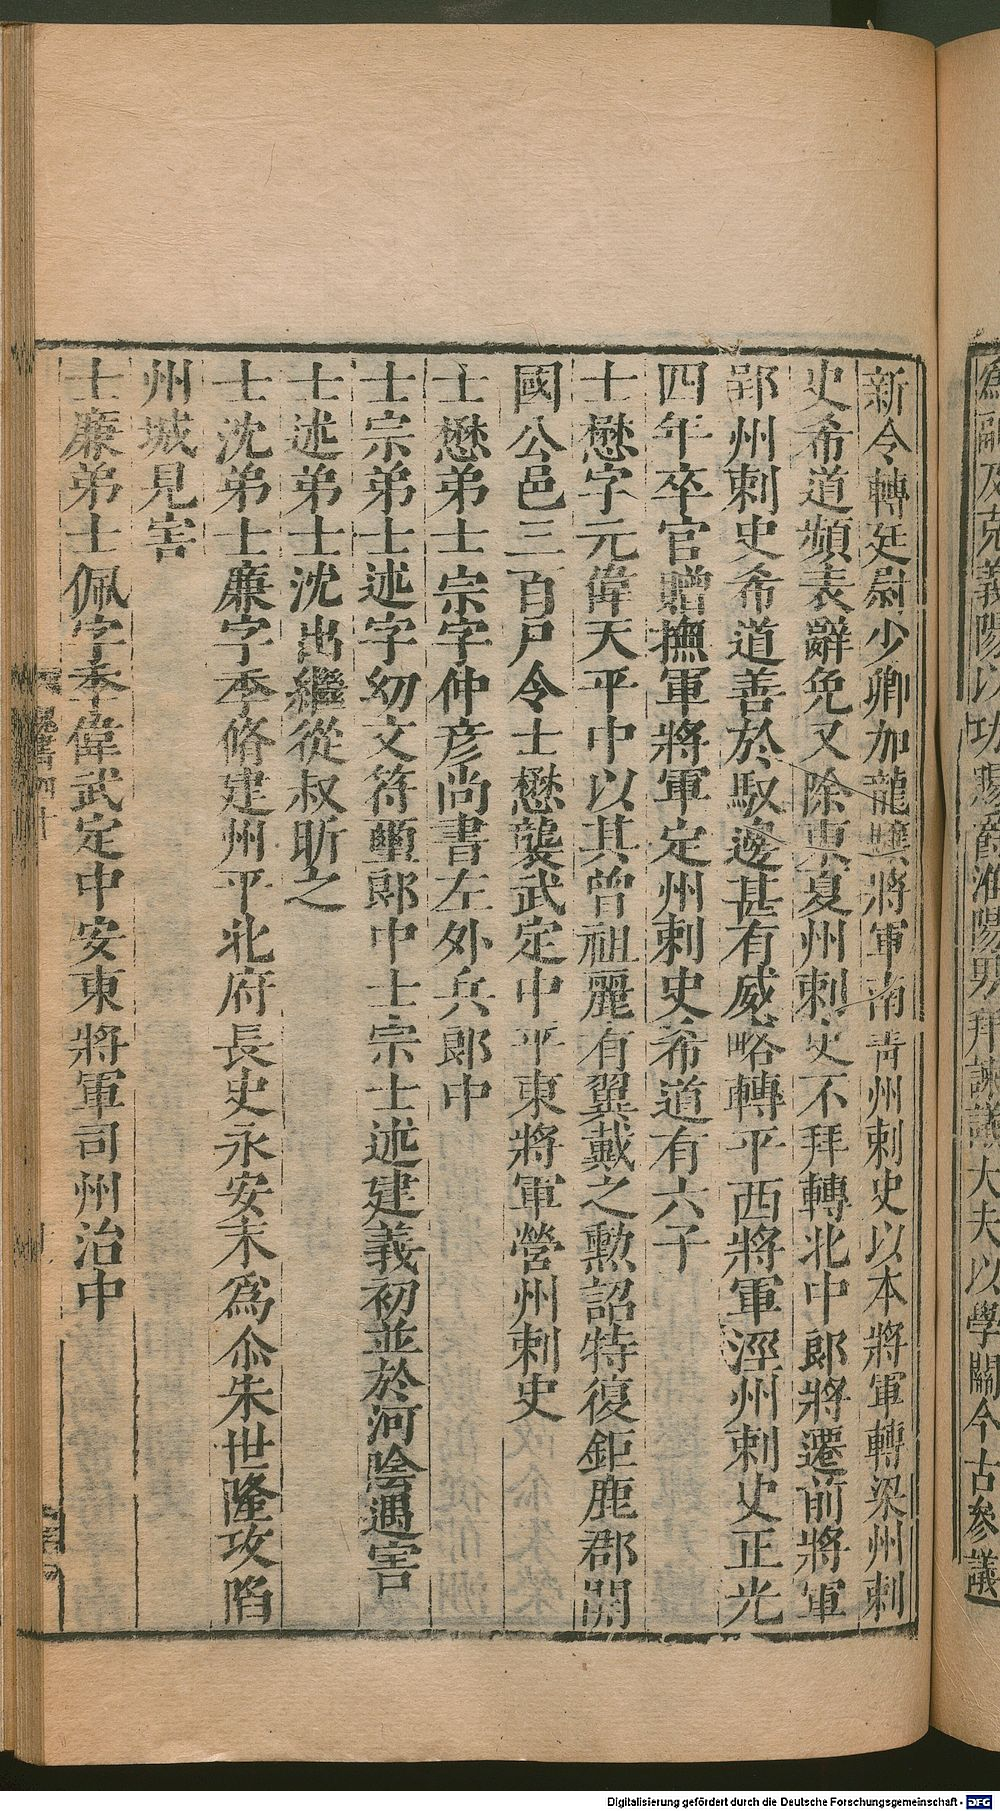 爲嗣及克義陽以功賜爵淮陽男拜諫議大夫以學關今古參議
新令轉廷尉少卿加龍驤將軍南青州刺史以本將軍轉梁州刺
史希道頻表辭免又除東夏州刺史不拜轉北中郎將遷前將軍
郢州刺史希道善於馭邊甚有威略轉平西將軍涇州刺史正光
四年卒官贈撫軍將軍定州刺史希道有六子
士懋字元偉天平中以其曾祖麗有翼戴之勲詔特復鉅鹿郡開
國公邑三百戸令士懋襲武定中平東將軍營州刺史
士懋弟士宗字仲彦尚書左外兵郎中
士宗弟士述字幼文符璽郎中士宗士述建義初並於河陰遇害
士述弟士沈出繼從叔昕之
士沈弟士廉字季脩建州平北府長史永安末爲尒朱世隆攻陷
州城見害
士廉弟士佩字季偉武定中安東將軍司州治中
魏書四十
Digitalisierung gefördert durch die Deutsche Forschungsgemeinschaft - DFG